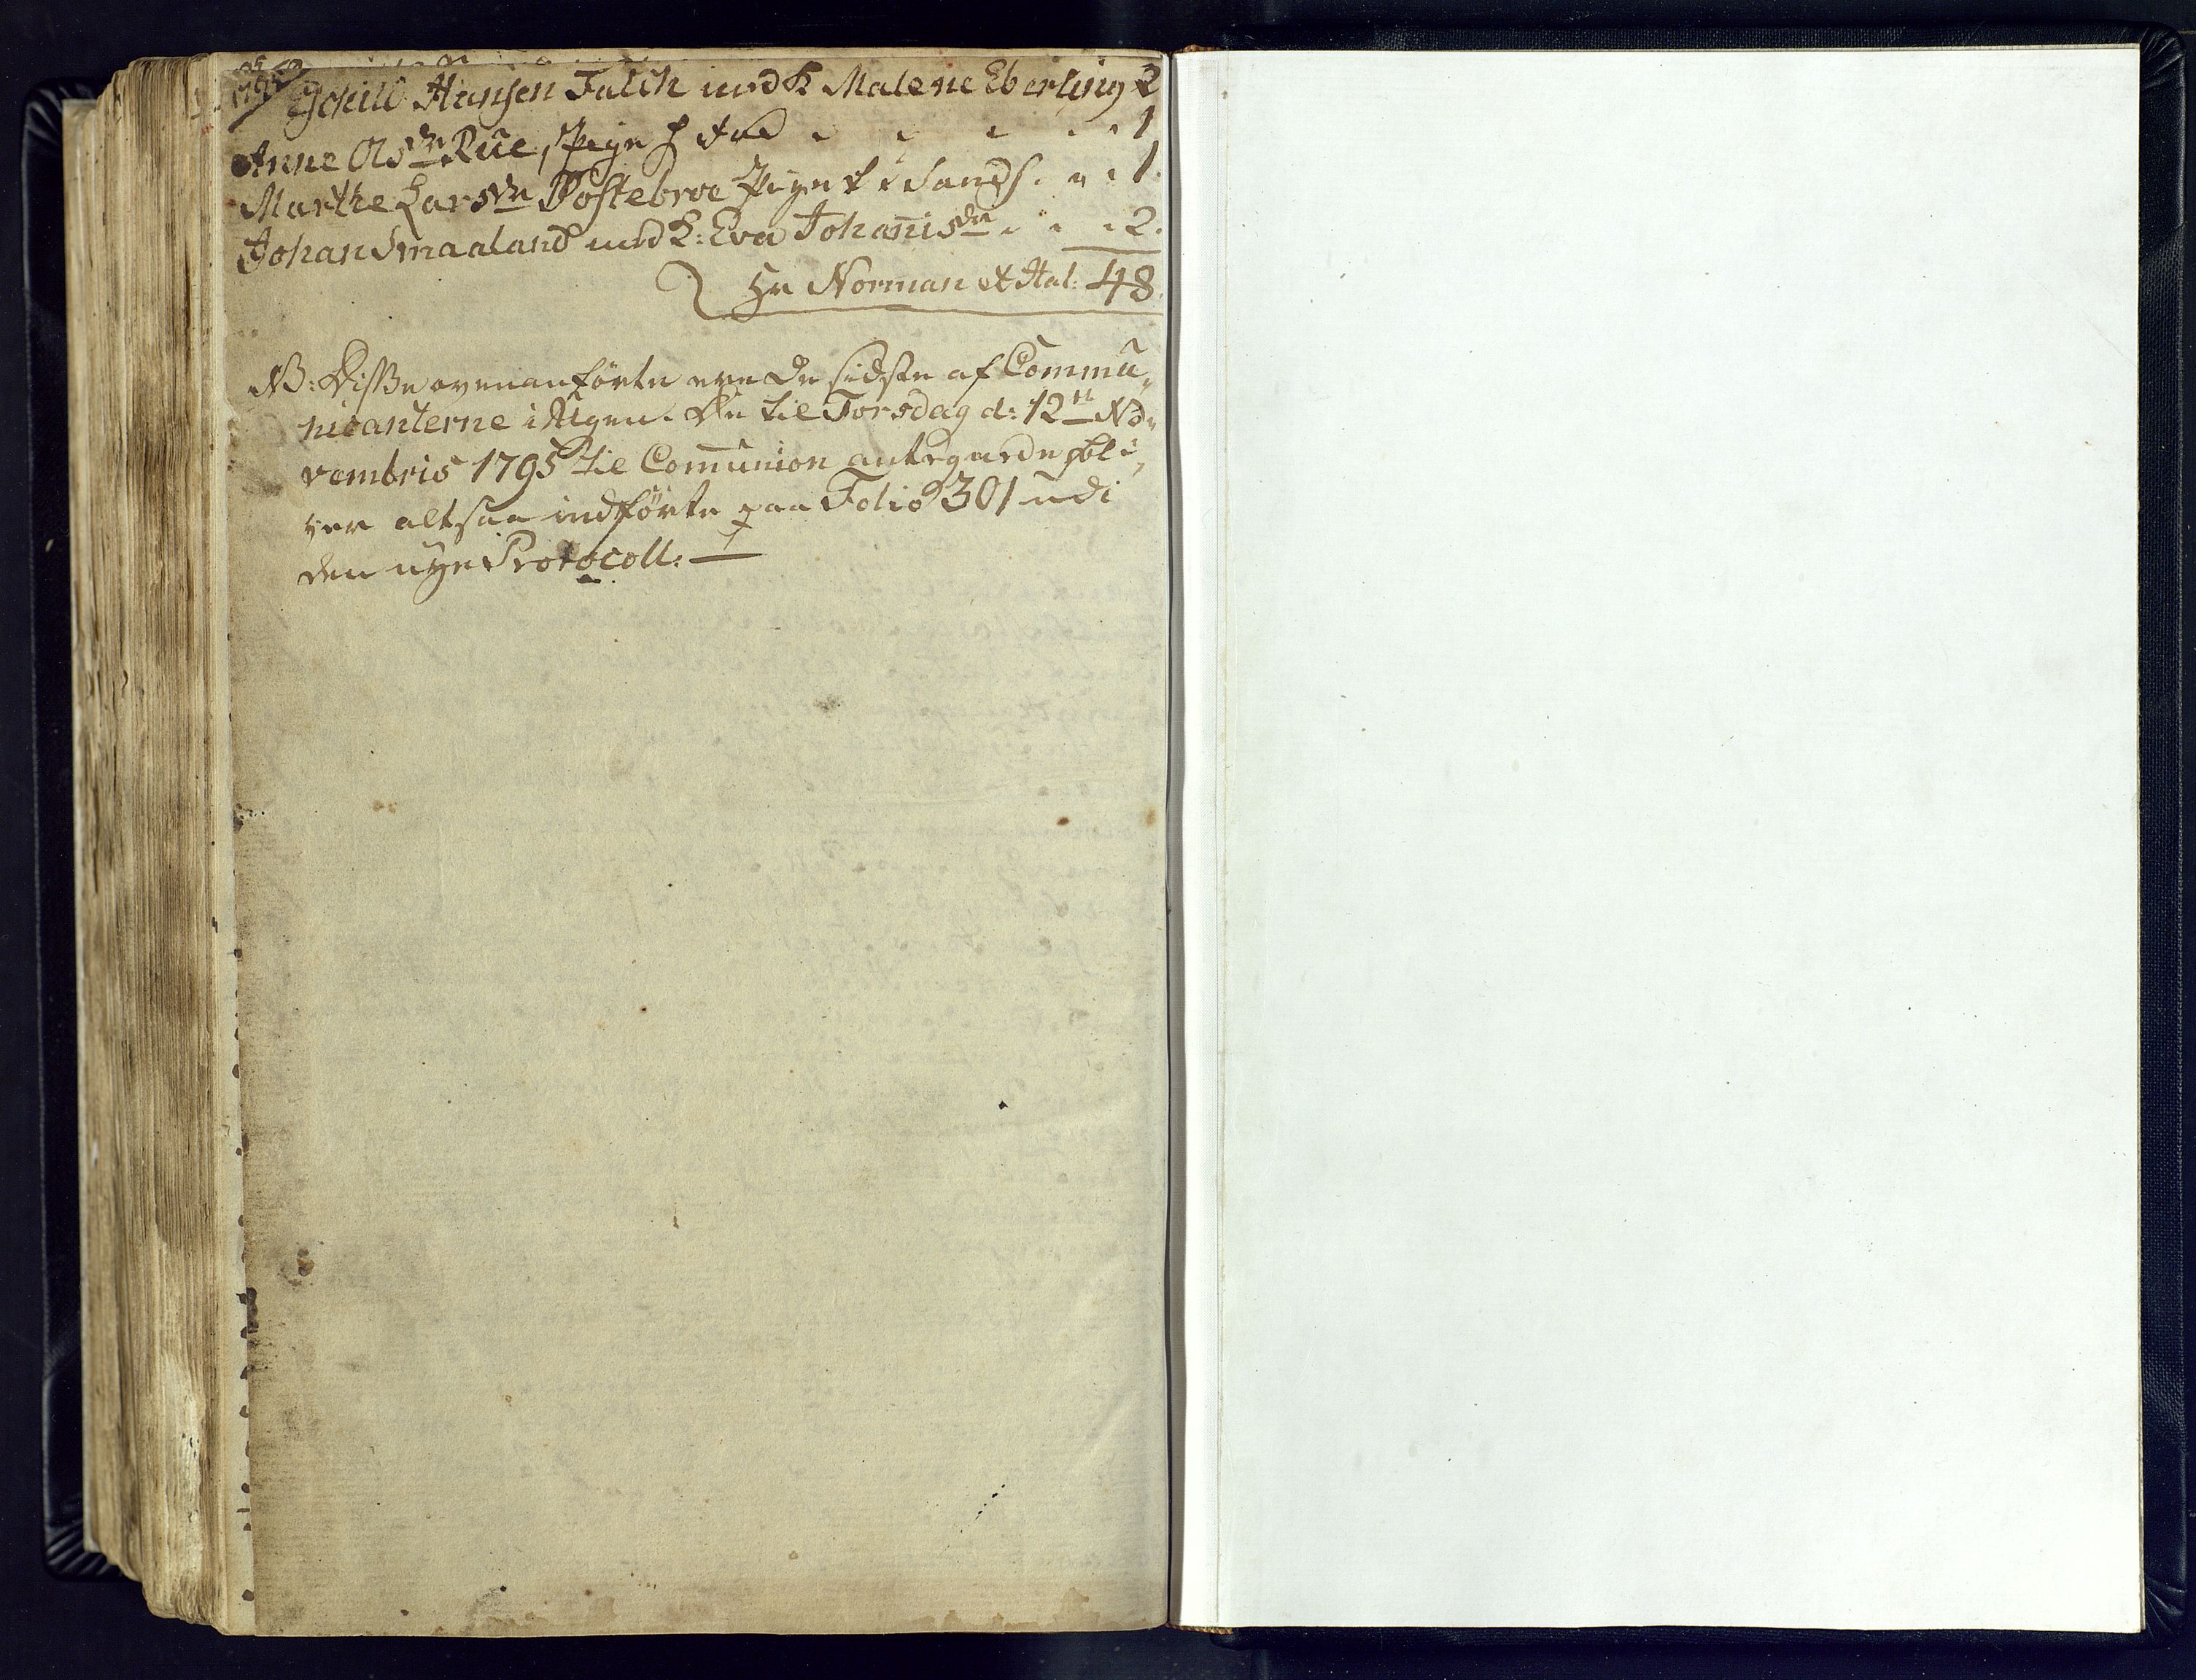 1795
Hansen Falch med K Malene Eberling 2
Anne Olsdn Rüe, Pige 1
Marthe Larsdn Postebroe Pige 1
Johan Smaaland med K: Eva Johanisdn 2.
Hr Norman et Hal: 48
NB: Disse ovenanførte ere de sidste af Commu„
nicanterne i Ugen. De til Torsdag d: 12te No„
vembris 1795 til Comunion antegnede bli„
ver altsaa indførte paa Folio 301 udi
den nye Protocoll: